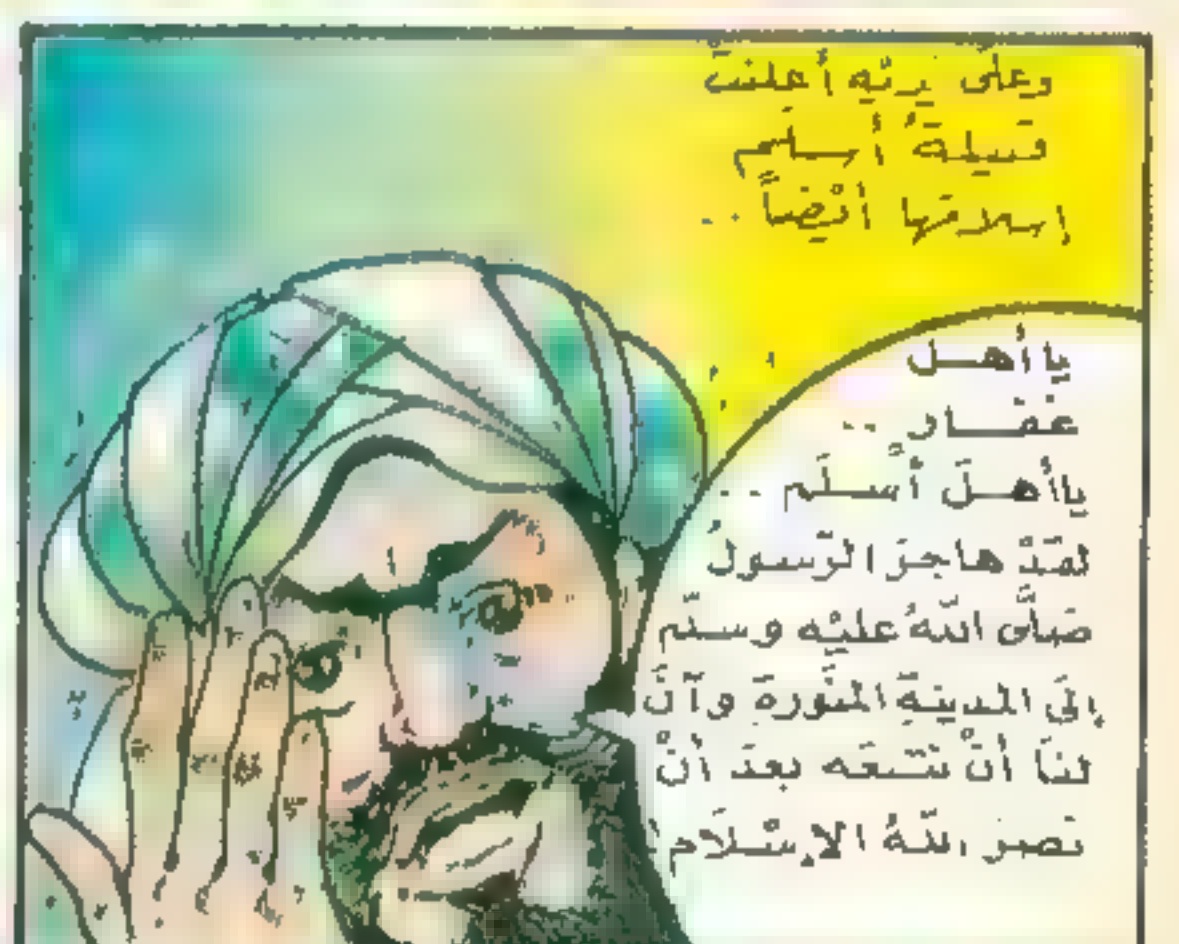 وعلى يديْهِ أعلنتْ
قبيلةُ أسلم
إسلامَها أيْضاً ..
يا أهل
غفارِ ..
يا أهلَ أسلَم ..
لقدْ هاجرَ الرّسولُ
صَلَّى اللّهُ عليْهِ وسلّم
إلى المدينةِ المنّورةِ وآنَ
لنَا أنْ نتبعَه بعدَ أنْ
نصرَ اللّهُ الإسْلَام!